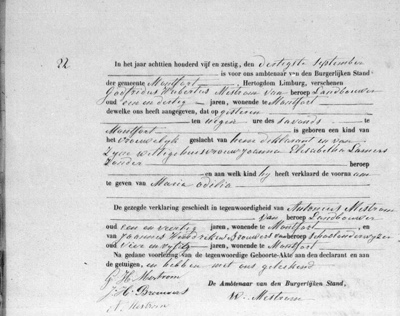 22
In het jaar achttien honderd vijf en zestig, den dertigste September
is voor ons ambtenaar van den Burgerlijken Stand
der gemeente Montfort Hertogdom Limburg, verschenen
Godfridus Hubertus Mestrom van beroep Landbouwer
oud een en dertig jaren, wonende te Montfort
dewelke ons heeft aangegeven, dat op gisteren
ten negen ure des savonds te
Montfort is geboren een kind van
het vrouwelijk geslacht van hem deklarant en van
Zijne wettige huisvrouw Joanna Elisabetha Lamers
Zonder beroep
en aan welk kind hij heeft verklaard de voornaam
te geven van Maria Odilia
De gezegde verklaring geschiedt in tegenwoordigheid van Antonius Mestrom
van beroep Landbouwer
oud een en veertig jaren, wonende te Montfort en
van Joannes Hendrikus Bremons van beroep
oud vier en vijftig jaren, wonende te Montfort
Na gedane voorlezing van de tegenwoordige Geboorte-Akte aan den declarant en aan
de getuigen, en hebben met ons geteekend
G H Mestrom
De Ambtenaar van den Burgerlijken Stand,
J H Bremons
W. Mestrom
A. Mestrom